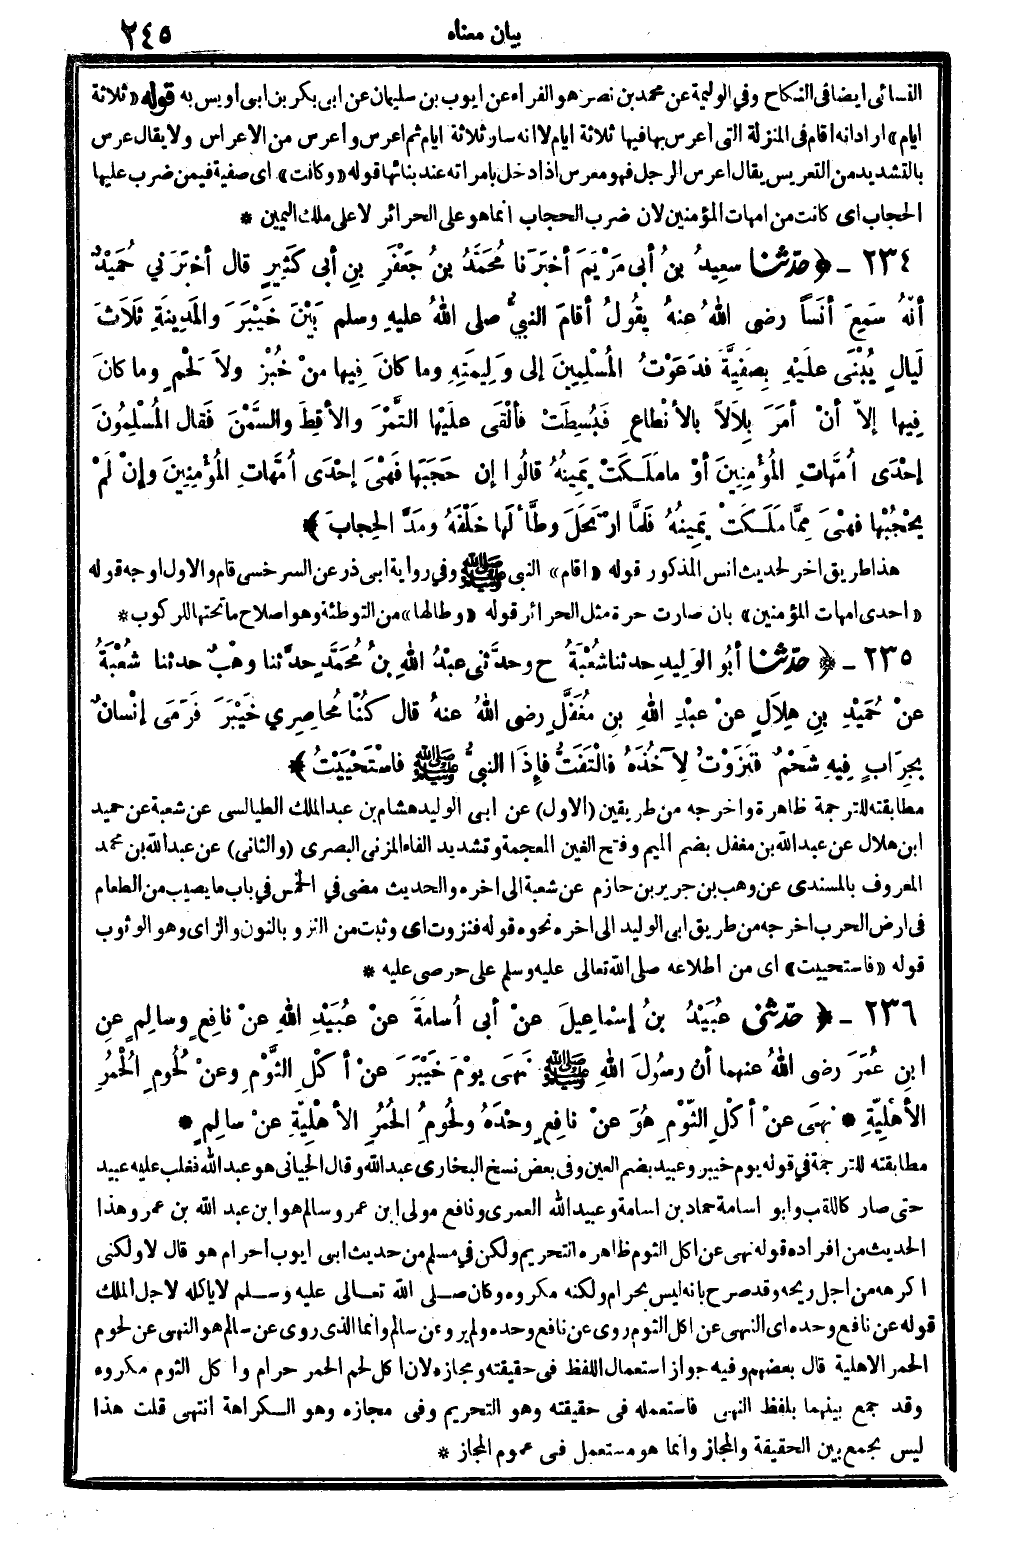 بيان معناه
٢٤٥
النسائى ايضا فى النكاح وفى الوليمة عن محمد بن نصر هو الفراء عن ايوب بن سليمان عن ابى بكر بن ابى أويس به قوله «ثلاثة
ايام» اراد انه اقام فى المنزلة التى أعرس بها فيها ثلاثة ايام لا انه سار ثلاثة ايام ثم اعرس وأعرس من الاعراس ولا يقال عرس
بالتشديد من التعريس يقال اعرس الرجل فهو معرس اذا دخل بامراته عند بنائها قوله «وكانت» اى صفية فيمن ضرب عليها
الحجاب اى كانت من امهات المؤمنين لان ضرب الحجاب انما هو على الحرائر لا على ملك اليمين *
٢٣٤ ـ ﴿ حدّثنا سعِيدُ بنُ أبى مَرْيَمَ أخبَرَنا مُحَمَّدُ بنُ جَعْفَرِ بنِ أبى كَثِيرٍ قال أخبَرَني حُمَيْدٌ
أنَّهُ سَمِعَ أنَساً رضى اللهُ عنهُ يقُولُ أقامَ النبيُّ صلى اللهُ عليهِ وسلم بَيْنَ خَيْبَرَ والمَدِينَةِ ثَلاَثَ
لَيالٍ يُبْنَى علَيْهِ بِصَفِيَّةَ فدَعَوْتُ المُسْلِمِينَ إلى وَلِيمَتِهِ وما كانَ فِيها منْ خُبْزٍ ولاَ لَحْمٍ وما كانَ
فِيها إلاّ أنْ أمَرَ بِلاَلاً بالأنْطاعِ فَبُسِطَتْ فألْقَى علَيْها التَّمْرَ والأقِطَ والسَّمْنَ فَقال المُسْلِمُونَ
إحْدَى أُمَّهاتِ المُؤْمِنِينَ أوْ ما ملَكَتْ يَمِينُهُ قالُوا إن حَجَبَها فَهْىَ إحْدَى أُمَّهاتِ المُؤْمِنِينَ وإنْ لَمْ
يحْجُبْها فهْىَ مِمَّا مَلَكَتْ يَمِينُهُ فَلمَّا ارْتَحَلَ وطَّأ لَها خَلْفَهُ ومَدَّ الحِجابَ ﴾
هذا طريق اخر لحديث انس المذكور قوله «اقام» النبى ﷺ وفى رواية ابى ذر عن السرخسى قام والاول اوجه قوله
«احدى امهات المؤمنين» بان صارت حرة مثل الحرائر قوله «وطالها» من التوطئة وهو اصلاح ما تحتها للركوب *
٢٣٥ ـ ﴿ حدّثنا أبُو الوَلِيدِ حدثنا شُعْبَةُ ح وحدَّثنى عبْدُ اللهِ بنُ مُحَمَّدٍ حدّثنا وهْبٌ حدثنا شُعْبَةُ
عنْ حُمَيْدِ بنِ هِلاَلٍ عنْ عبْدِ اللهِ بنِ مغُفَّلٍ رضى اللهُ عنهُ قال كُنَّا مُحاصِرِي خَيْبَرَ فَرَمَى إنْسانٌ
بجِرَابٍ فِيهِ شَحْمٌ فَنَزَوْتُ لِآخُذَهُ فالْتَفَتُّ فإِذَا النبيُّ ﷺ فاسْتَحْيَيْتُ ﴾
مطابقته للترجمة ظاهرة واخرجه من طريقين (الاول) عن ابى الوليد هشام بن عبد الملك الطيالسى عن شعبة عن حميد
ابن هلال عن عبد الله بن مغفل بضم الميم وفتح الغين المعجمة وتشديد الفاء المزنى البصرى (والثانى) عن عبد الله بن محمد
المعروف بالمسندى عن وهب بن جرير بن حازم عن شعبة الى اخره والحديث مضى في الخمس في باب ما يصيب من الطعام
فى ارض الحرب اخرجه من طريق ابى الوليد الى اخره نحوه قوله فنزوت اى وثبت من النزو بالنون والزاى وهو الوثوب
قوله «فاستحييت» اى من اطلاعه صلى الله تعالى عليه وسلم على حرصى عليه *
٢٣٦ ـ ﴿ حدّثنى عُبَيْدُ بنُ إسْماعِيلَ عنْ أبى أُسامَةَ عنْ عُبَيْدِ اللهِ عنْ نافِعٍ وسالِمٍ عنِ
ابنِ عُمَرَ رضى اللهُ عنهما أن رسُولَ اللهِ ﷺ نَهَى يوْمَ خَيْبَرَ عنْ أكْلِ الثَّوْمِ وعنْ لُحُومِ الحُمُرِ
الأهْلِيّةِ * نهَى عنْ أكْلِ الثَّوْمِ هُوَ عنْ نافِعٍ وحْدَهُ ولُحُومُ الحُمُرِ الأهْلِيّةِ عنْ سالِمٍ *
مطابقته للترجمة في قوله يوم خيبر وعبيد بضم العين وفى بعض نسخ البخارى عبد الله وقال الجيانى هو عبد الله فغلب عليه عبيد
حتى صار كاللقب وابو اسامة حماد بن اسامة وعبيد الله العمرى ونافع مولى ابن عمر وسالم هو ابن عبد الله بن عمر وهذا
الحديث من افراده قوله نهى عن اكل الثوم ظاهره التحريم ولكن في مسلم من حديث ابى ايوب احرام هو قال لا ولكنى
اكرهه من اجل ريحه وقد صرح بانه ليس بحرام ولكنه مكروه وكان صلى الله تعالى عليه وسلم لا ياكله لاجل الملك
قوله عن نافع وحده اى النهى عن اكل الثوم روى عن نافع وحده ولم يرو عن سالم وانما الذى روى عن سالم هو النهى عن لحوم
الحمر الاهلية قال بعضهم وفيه جواز استعمال اللفظ فى حقيقته ومجازه لان اكل لحم الحمر حرام واكل الثوم مكروه
وقد جمع بينهما بلفظ النهى فاستعمله فى حقيقته وهو التحريم وفى مجازه وهو الكراهة انتهى قلت هذا
ليس بجمع بين الحقيقة والمجاز وانما هو مستعمل فى عموم المجاز *